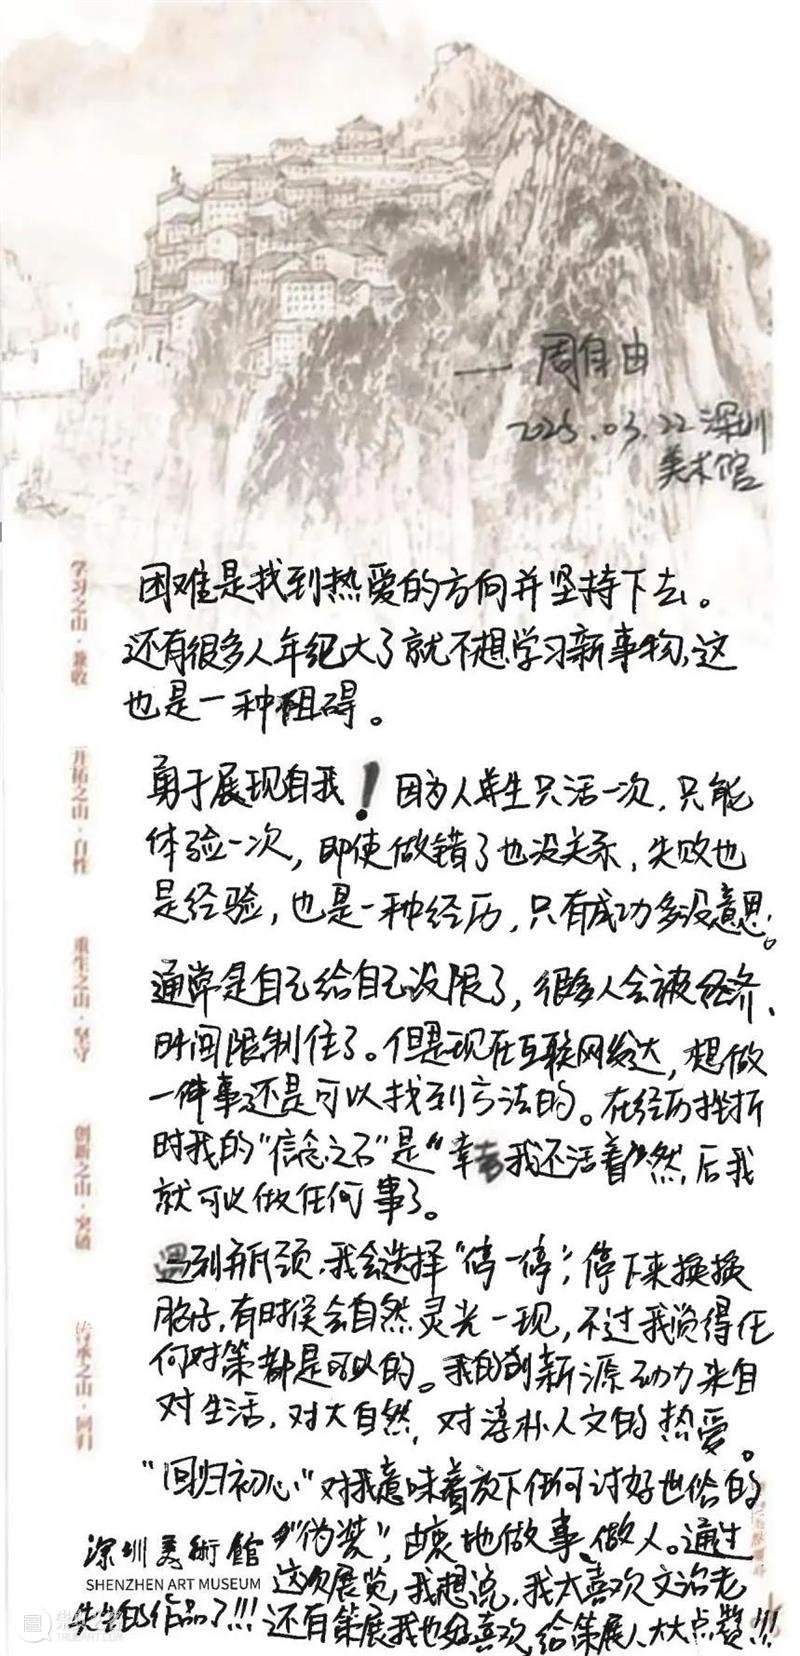 ——周自由
2025.03.22 深圳
美术馆
学习之山·兼收
开拓之山·自性
重生之山·坚守
创新之山·突破
传承之山·回归
困难是找到热爱的方向并坚持下去。
还有很多人年纪大了就不想学习新事物,这
也是一种阻碍。
勇于展现自我！因为人生只活一次,只能
体验一次,即使做错了也没关系,失败也
是经验,也是一种经历,只有成功多没意思。
通常是自己给自己设限了,很多人会被经济、
时间限制住了。但是现在互联网发达,想做
一件事还是可以找到方法的。在经历挫折
时我的“信念之石”是“幸我还活着”然后我
就可以做任何事了。
遇到瓶颈,我会选择“停一停”,停下来换换
脑子,有时候会自然灵光一现,不过我觉得任
何对策都是可以的。我的创新源动力来自
对生活,对大自然,对淳朴人文的热爱。
“回归初心”对我意味着放下任何讨好他俗的
“伪装”,由衷地做事、做人。通过
这次展览,我想说,我太喜欢文治老
先生的作品了!!!还有策展我也好喜欢,给策展人大大点赞!!!
深圳美術館
SHENZHEN ART MUSEUM